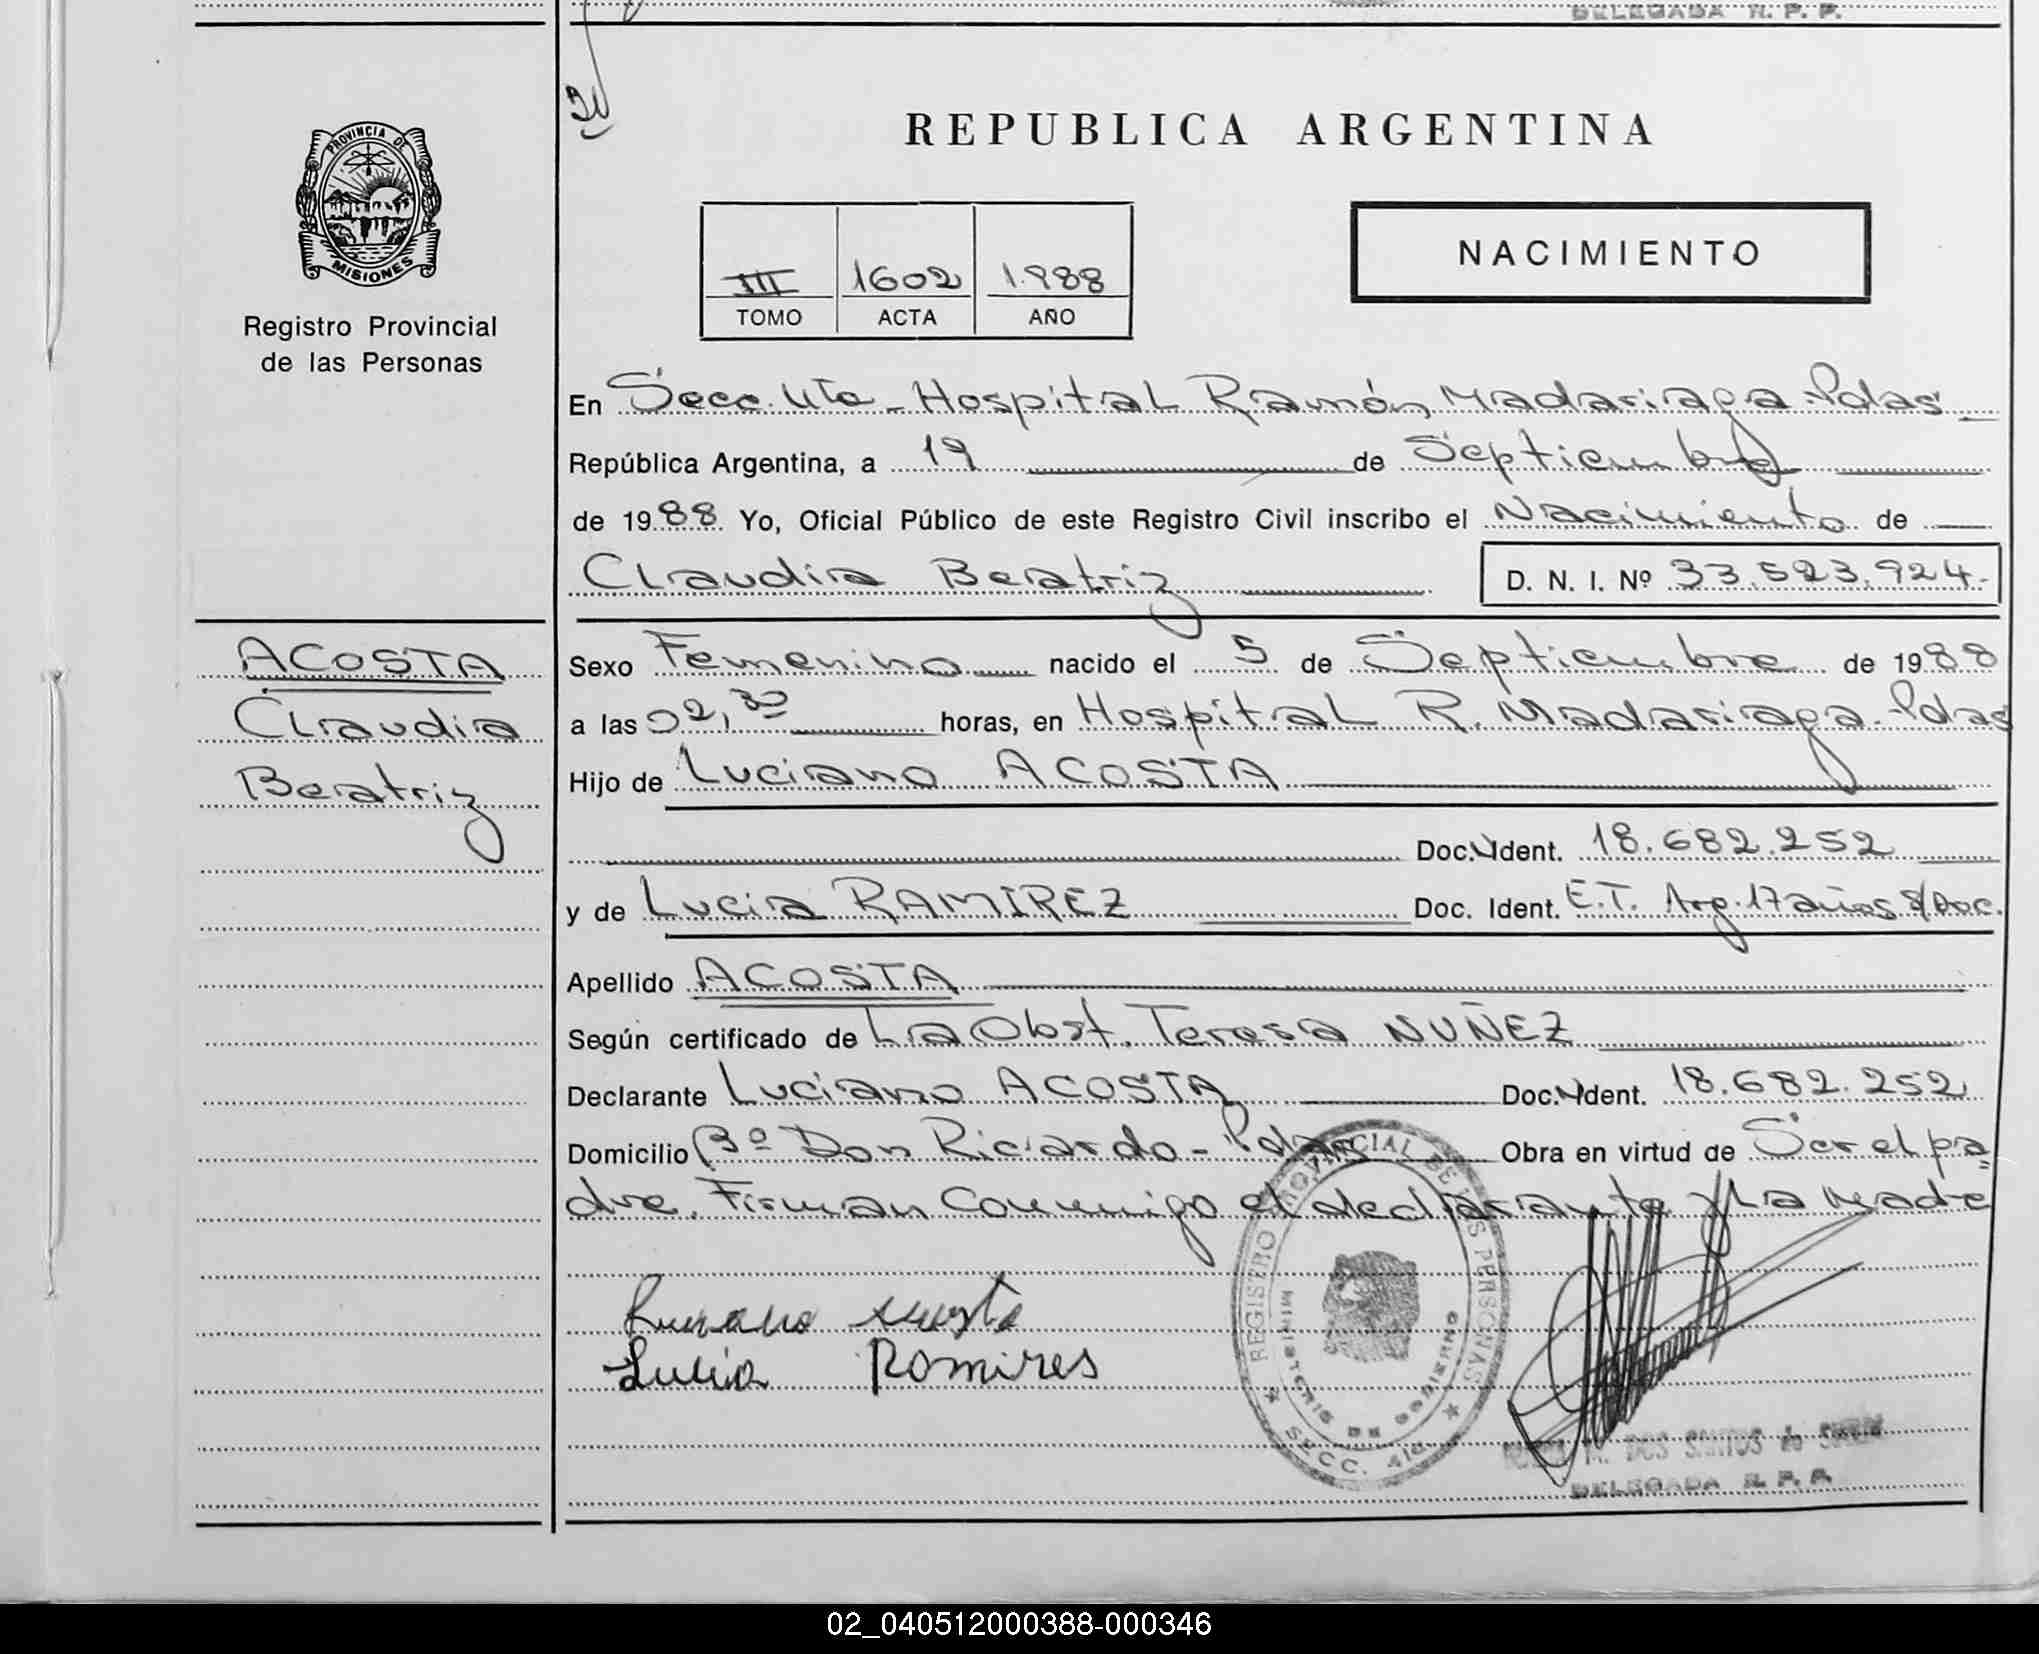 DELEGADA R. P. P.
PROVINCIA DE
MISIONES
Registro Provincial
de las Personas
REPUBLICA ARGENTINA
NACIMIENTO
III 1602 1.988
TOMO ACTA AÑO
En Secc. 4ta - Hospital Ramón Madariaga - Pdas -
República Argentina, a 19 de Septiembre
de 1988 Yo, Oficial Público de este Registro Civil inscribo el Nacimiento de
Claudia Beatriz D. N. I. Nº 33.523.924.-
ACOSTA
Claudia
Beatriz
Sexo Femenino nacido el 5 de Septiembre de 1988
a las 02,30 horas, en Hospital R. Madariaga - Pdas
Hijo de Luciano ACOSTA
Doc. Ident. 18.682.252
y de Lucia RAMIREZ Doc. Ident. E.T. Arg. 17 años S/Doc.
Apellido ACOSTA
Según certificado de La Obst. Teresa NUÑEZ
Declarante Luciano ACOSTA Doc. Ident. 18.682.252
Domicilio Bº Don Ricardo - Pdas Obra en virtud de Ser el pa=
dre. Firman Conmigo el declarante y La Madre
Luciano Acosta
Lucia Romires
REGISTRO PROVINCIAL DE LAS PERSONAS
MINISTERIO DE GOBIERNO
SECC. 4ta
M. DOS SANTOS de
DELEGADA R. P. P.
02_040512000388-000346